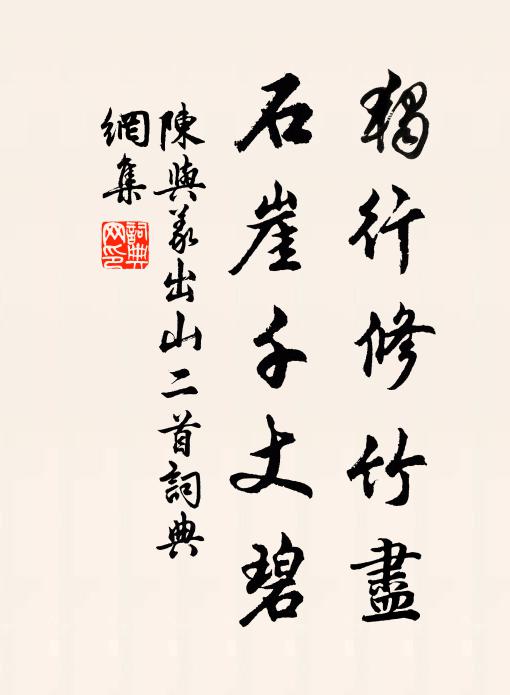 獨行修竹盡
石崖千丈碧
陳與義出山二首詞典
網集
詞典
网印